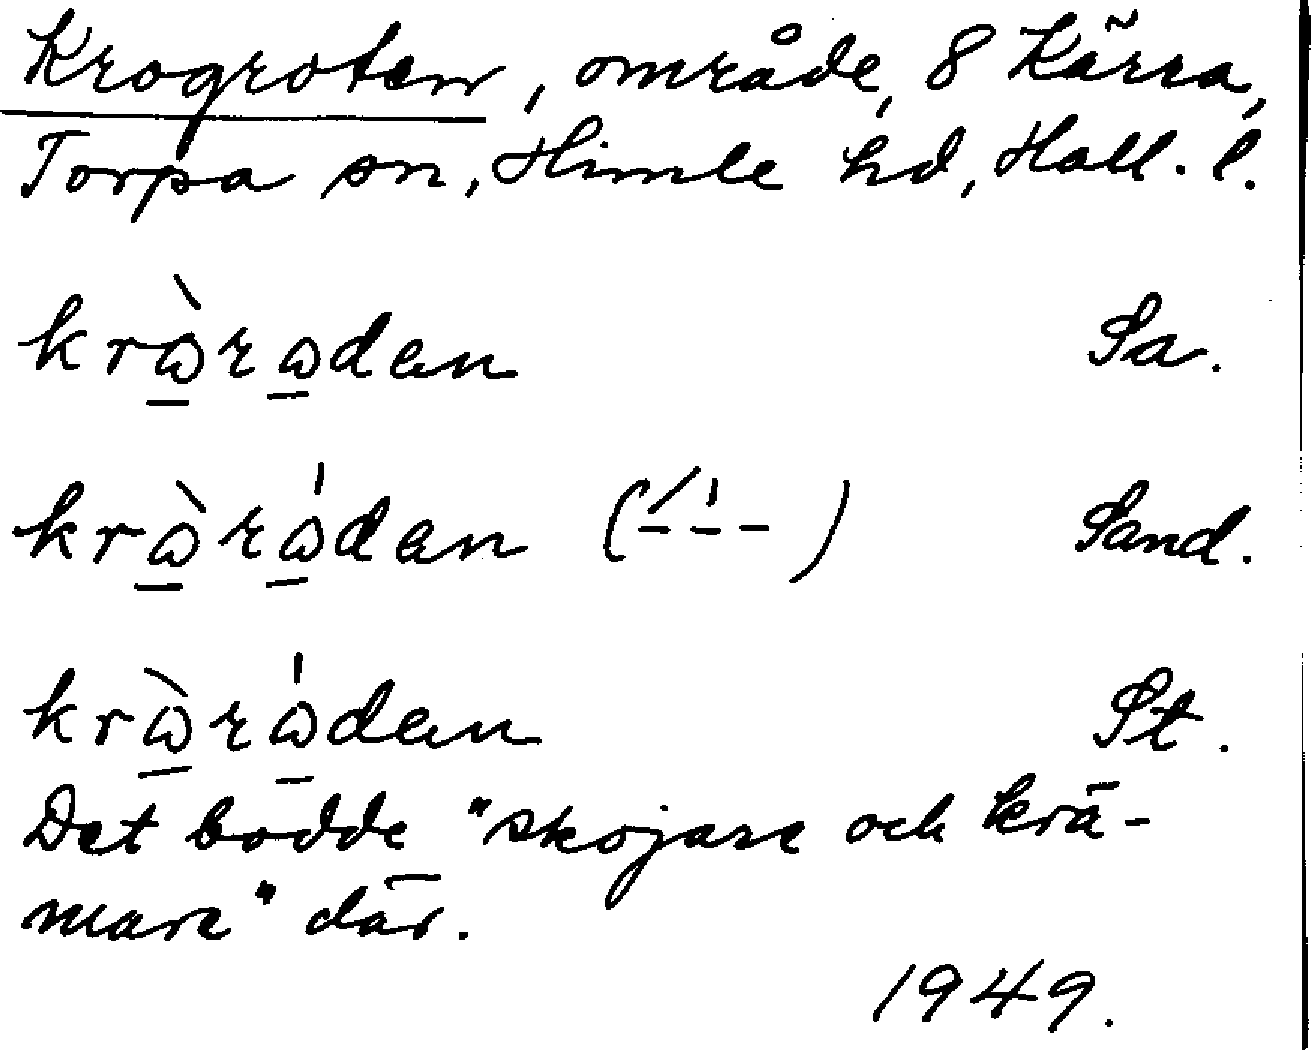 Krogroten, område, 8 Kärra,
Torpa sn, Himle hd, Hall. l.
krὼ̱rω̱den Sa.
krὼ̱rω̱̍den (-́-̍-) Sand.
krὼ̱rω̱̍den St.
Det bodde "skojare och krä-
mare" där.
1949.